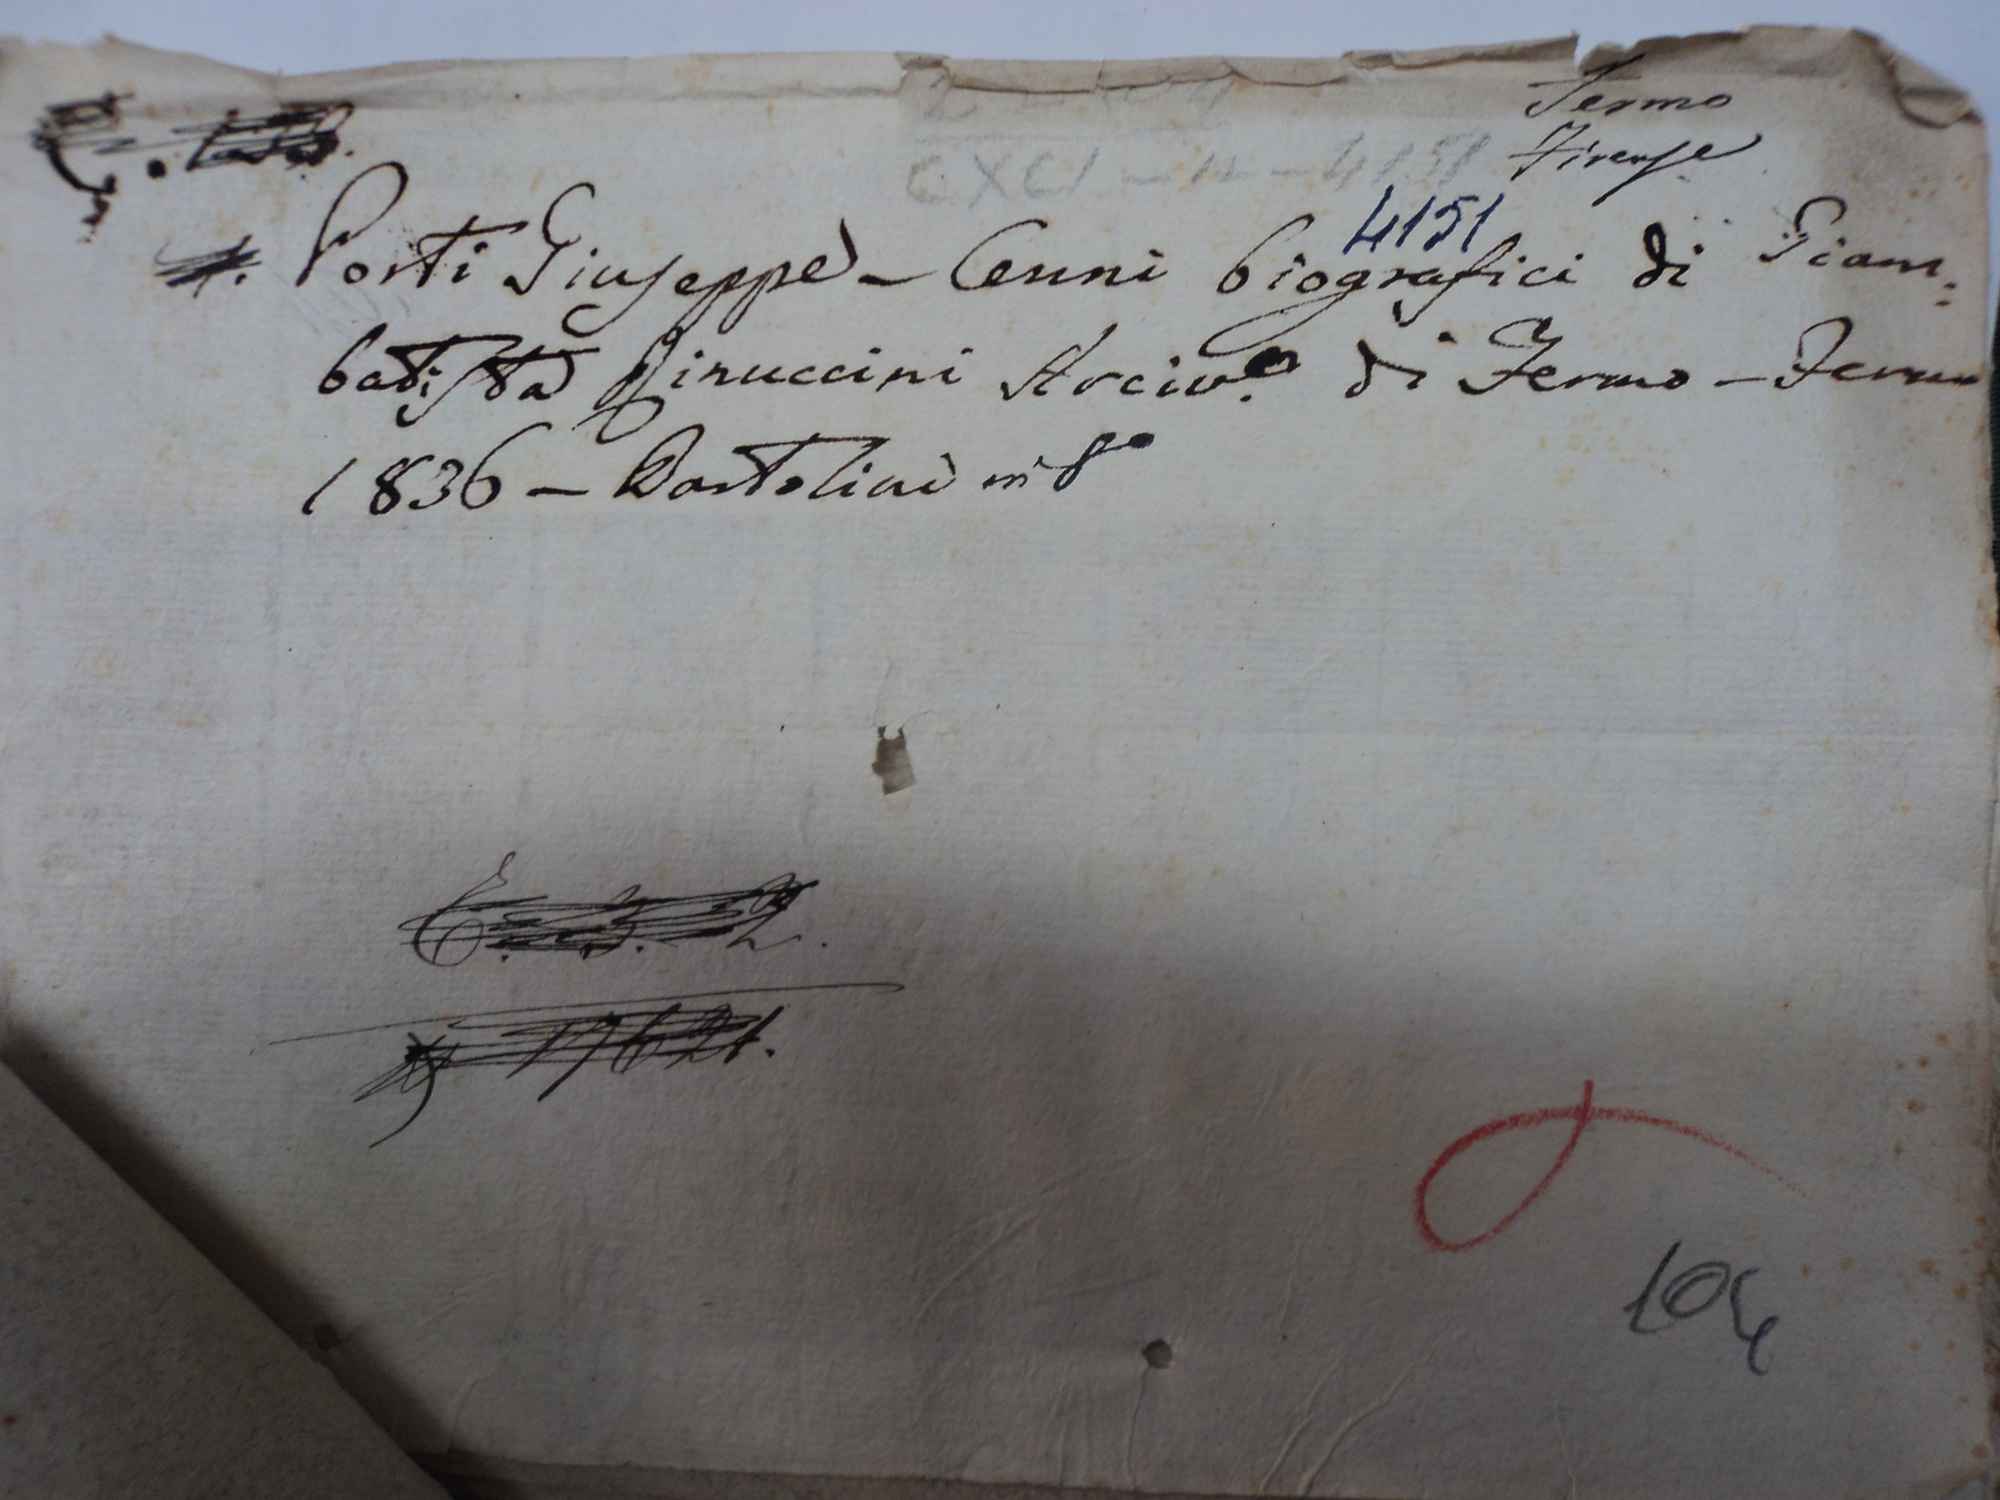 Fermo
Firenze
CXCI - n - 4151
4151
Porti Giuseppe - Cenni biografici di Giam=
batista Rinuccini Arciv.º di Fermo - Fermo
1836 - Bartolini in 8º
17621.
104